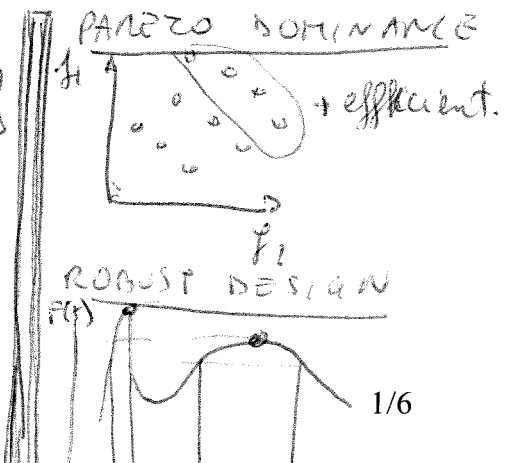 PARETO DOMINANCE
f1
+ efficient.
f2
ROBUST DESIGN
F(x)
1/6